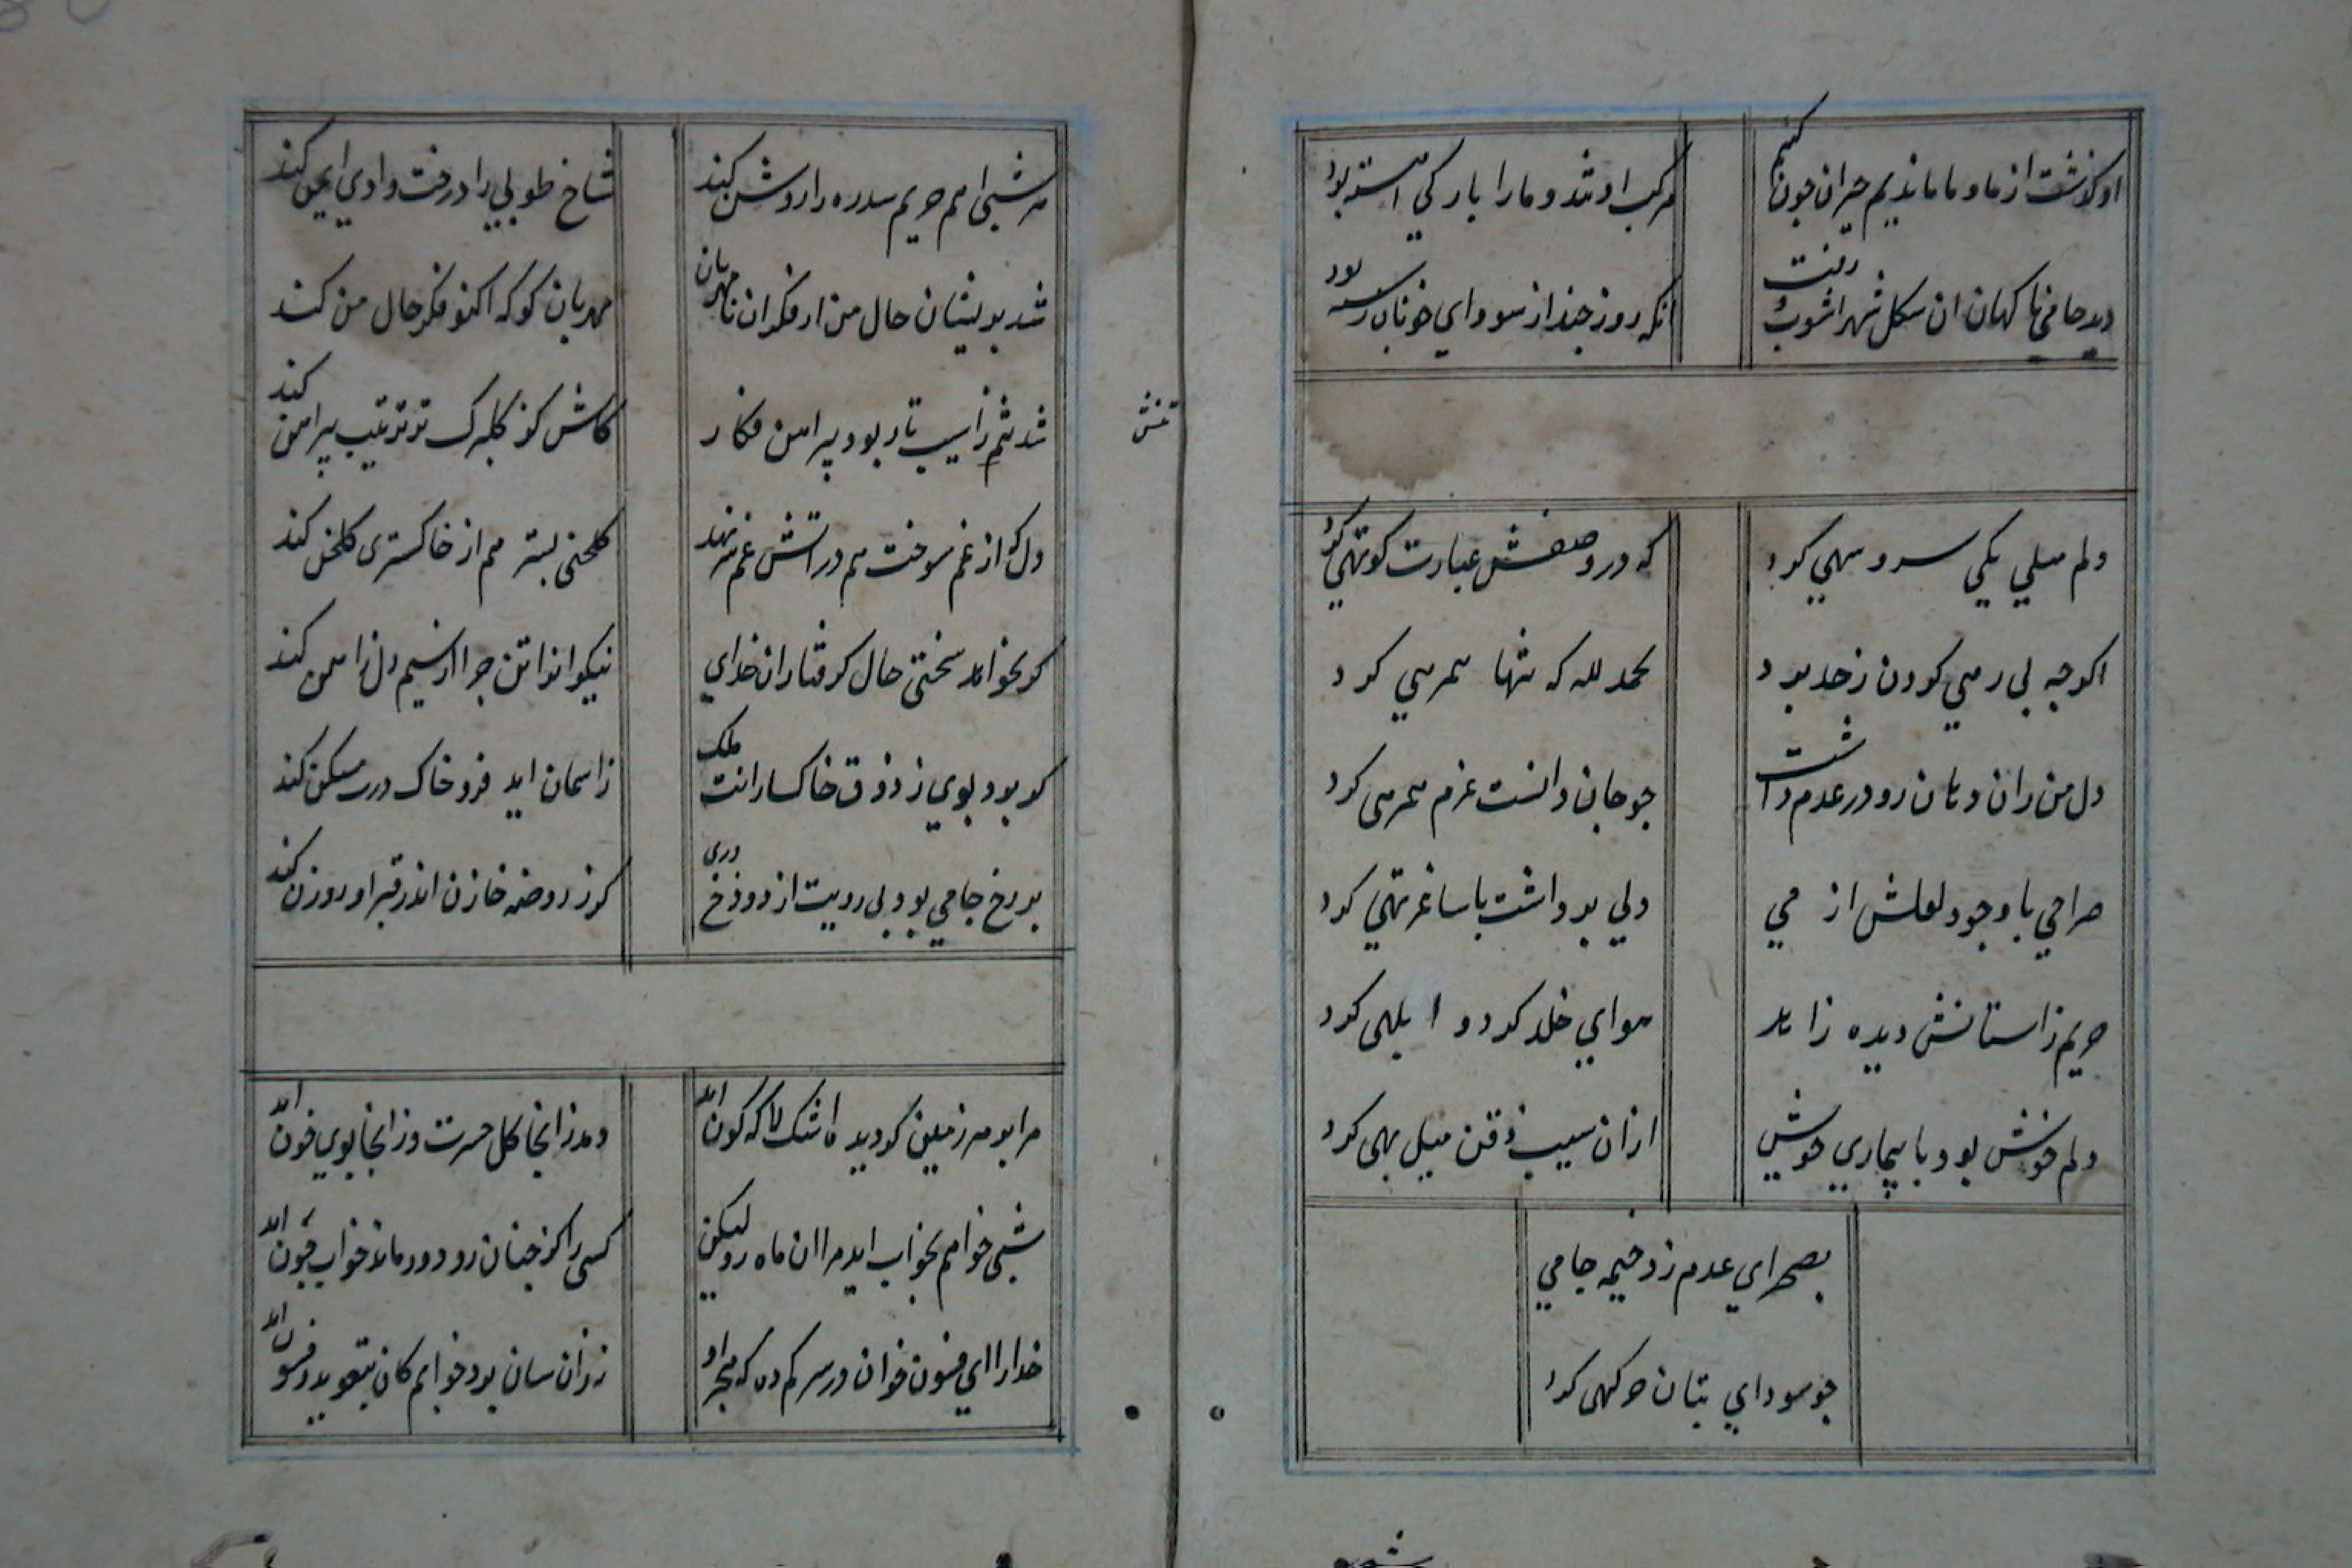 او گذشت از ما و ما ماندیم حیران چون کنیم
مرکب او تند و ما را بارگی آهسته بود
دید جامی ناکهان ان شکل شهر اشوب رفت
انکه روزی چند از سودای خوبان رسته بود
دلم میلی بکی سرو سهی کرد
که در وصفش عبارت کوتهی کرد
اکرچه بی رهی کردن ز حد برد
بحمدلله که تنها همرهی کرد
دل من زان دهان رو در عدم داشت
چو جان دانست عزم همرهی کرد
صراحی با وجود لعلش از می
ولی برداشت با ساغر تهی کرد
حریم زاستانش دیده زاهد
هوای خلد کرد و ابلهی کرد
دلم خوش بود با بیماری خویش
ازان سیب ذقن میل بهی کرد
بصحرای عدم زد خیمه جامی
چو سودای بتان خرکهی کرد
هر شبی اهم حریم سدره را روشن کند
شاخ طوبی را درخت وادی ایمن کند
شد پریشان حال من از فکر ان نامهربان
مهربان کو که اکنو فکر حال من کند
شد تنم زاسیب تار و پود پیراهن فکار
کاش کز کلبرک تو ترتیب پیراهن کند
تنش
دل که از غم سوخت هم در اتش غم سر نهد
کلخنی بستر هم از خاکستر کلخن کند
کر نخواهد سختی حال کرفتاران خدای
نیکوانرا تن چرا از سیم دل زاهن کند
کر برد بوی ز ذوق خاکسارانت ملک
زاسمان اید فرو خاک درت مسکن کند
بر رخ جامی بود بی رویت از دوزخ دری
کر ز روضه خازن اندر قبر او روزن کند
مرا بر هر زمین کز دیده اشک لاله کون اید
دمد زانجا کل حسرت وز انجا بوی خون اید
شبی خواهم بخواب اید مرا ان ماه رو لیکن
کسی را کز چنان رو دور ماند خواب چون اید
خدارا ای فسون خوان درسرکم ده که هجر او
نزد ان سان برد خوابم کان بتعوید و فسون اید